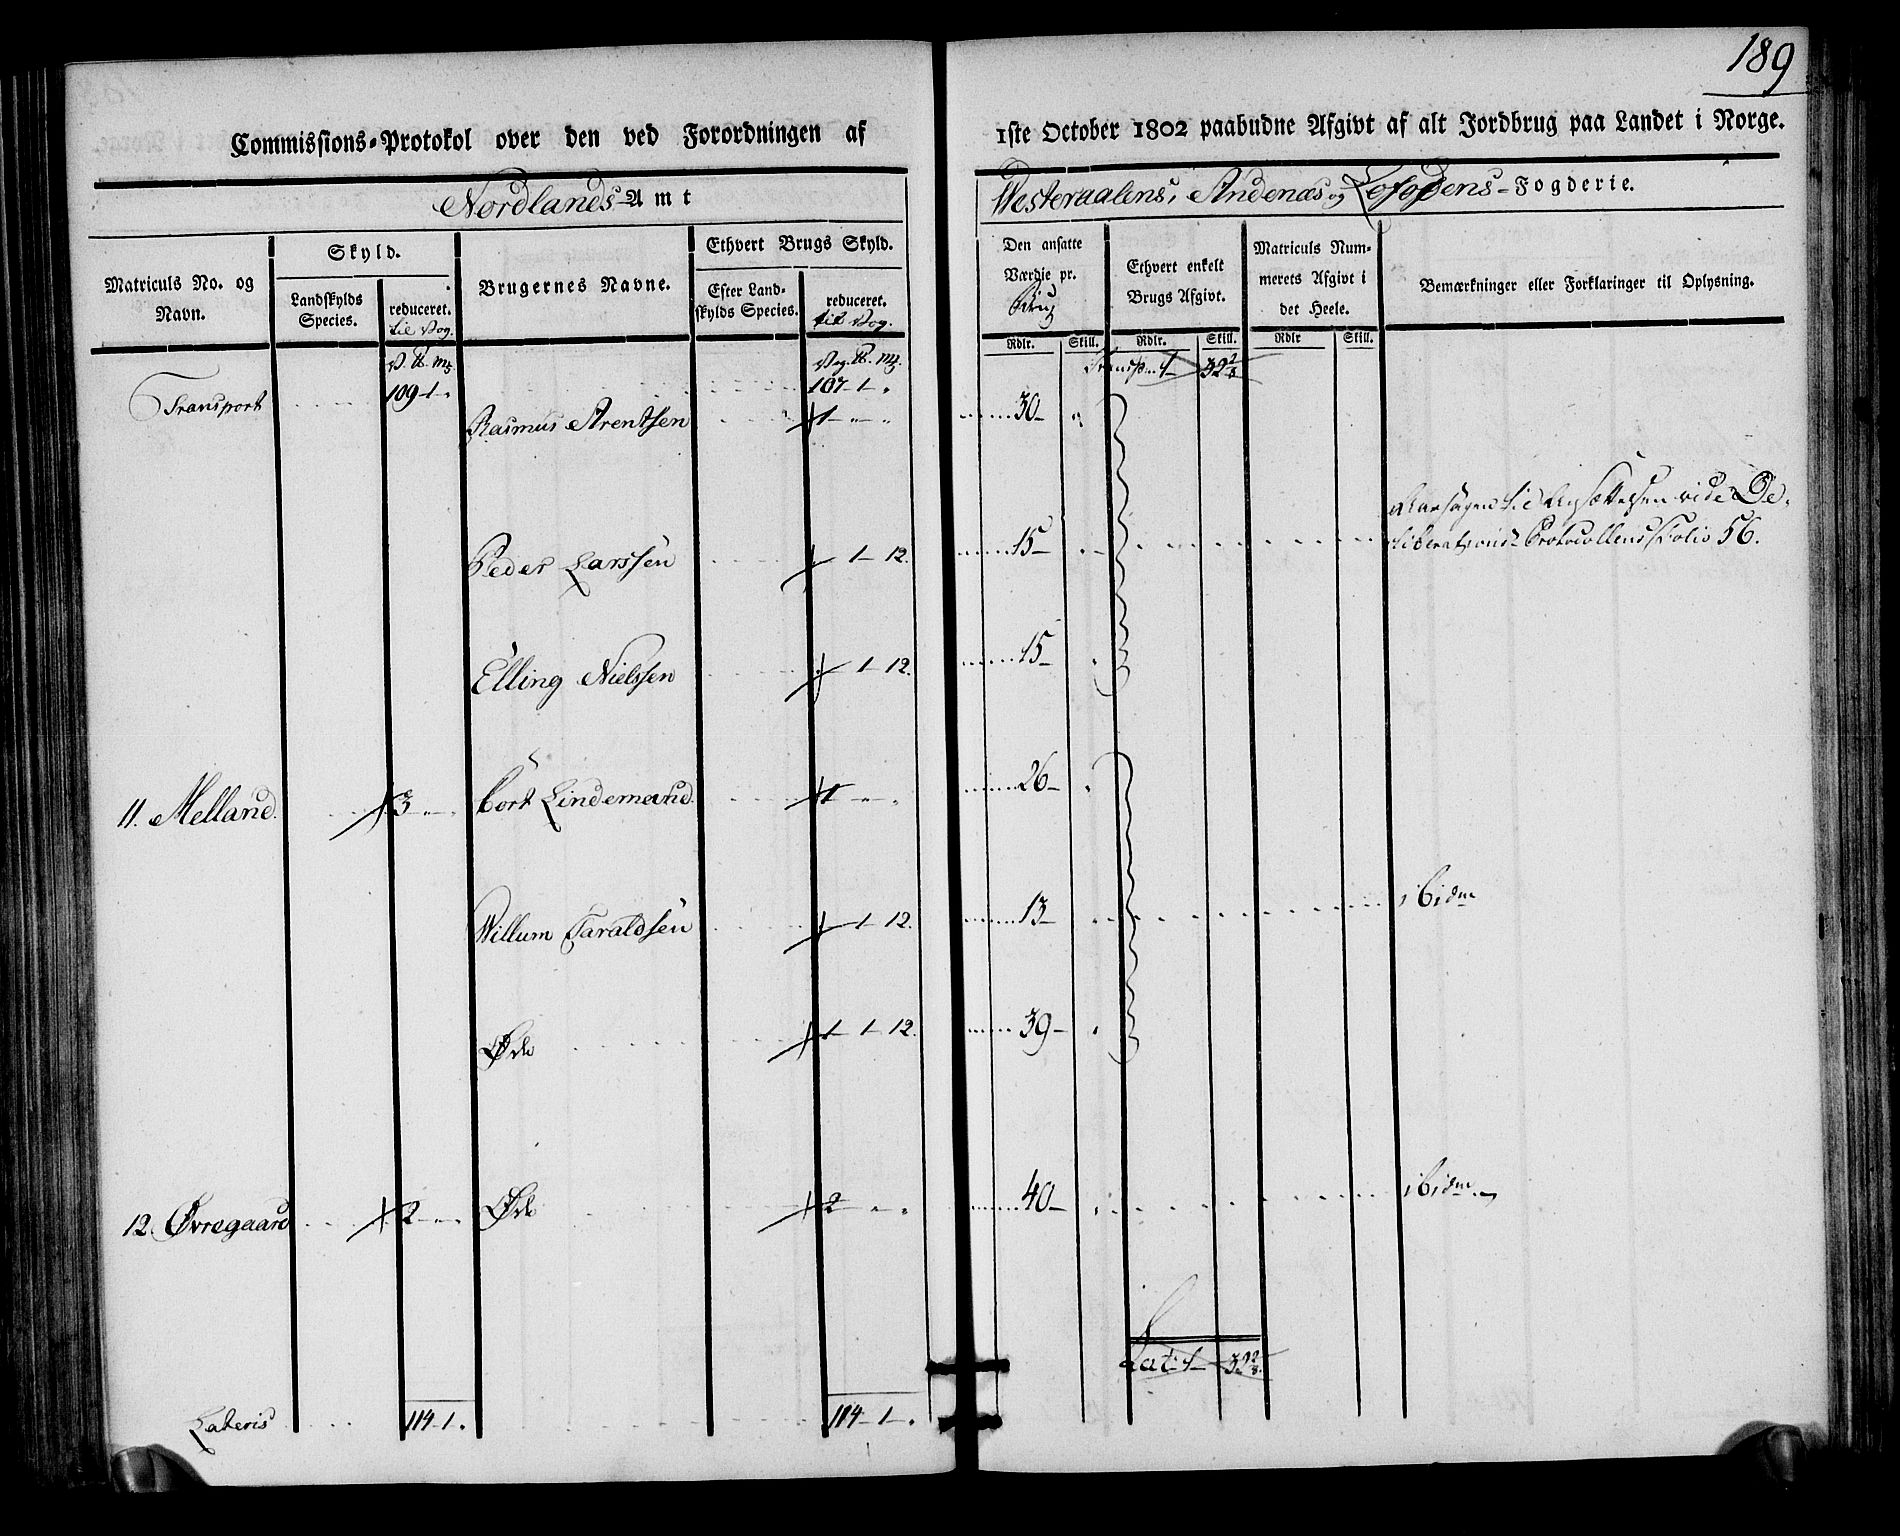 189
Commissions-Protokol over den ved Forordningen af 1ste October 1802 paabudne Afgivt af alt Jordbrug paa Landet i Norge.
Nordlands-Amt
Westeraalens, Andenæs og Lofodens-Fogderie.
Matriculs No. og Navn.
Skyld.
Landskylds Species.
reduceret. til Vog.
Brugernes Navne.
Ethvert Brugs Skyld.
Efter Landskylds Species.
reduceret. til Vog.
Den ansatte Værdie pr. Brug
Ethvert enkelt Brugs Afgivt.
Matriculs Nummerets Afgivt i det Heele.
Bemærkninger eller Forklaringer til Oplysning.
Rdlr. Skill. Rdlr. Skill. Rdlr Skill.
V. ℔. mk. Vog. ℔. mk. Transp. 1 32 2/3
Transport 109-1-" 107-1-"
Rasmus Arentsen 1-"-" 30-"
Peder Larssen 1-12. 15- Aarsagen til Ansættelsen vide De-
liberations Protocollens Folio 56.
Elling Nielssen 1-12. 15-
11. Melland. 3-"-" Cort Lindemand 1-"-" 26-
Willum Taraldsen 1-12. 13- ibidm
Øde 1-1-12. 39-
12. Øvregaard 2-"-" Øde 2-"-" 40- ibidm
Lat: 1-32 2/3.
Lateris 114-1. 114-1-"